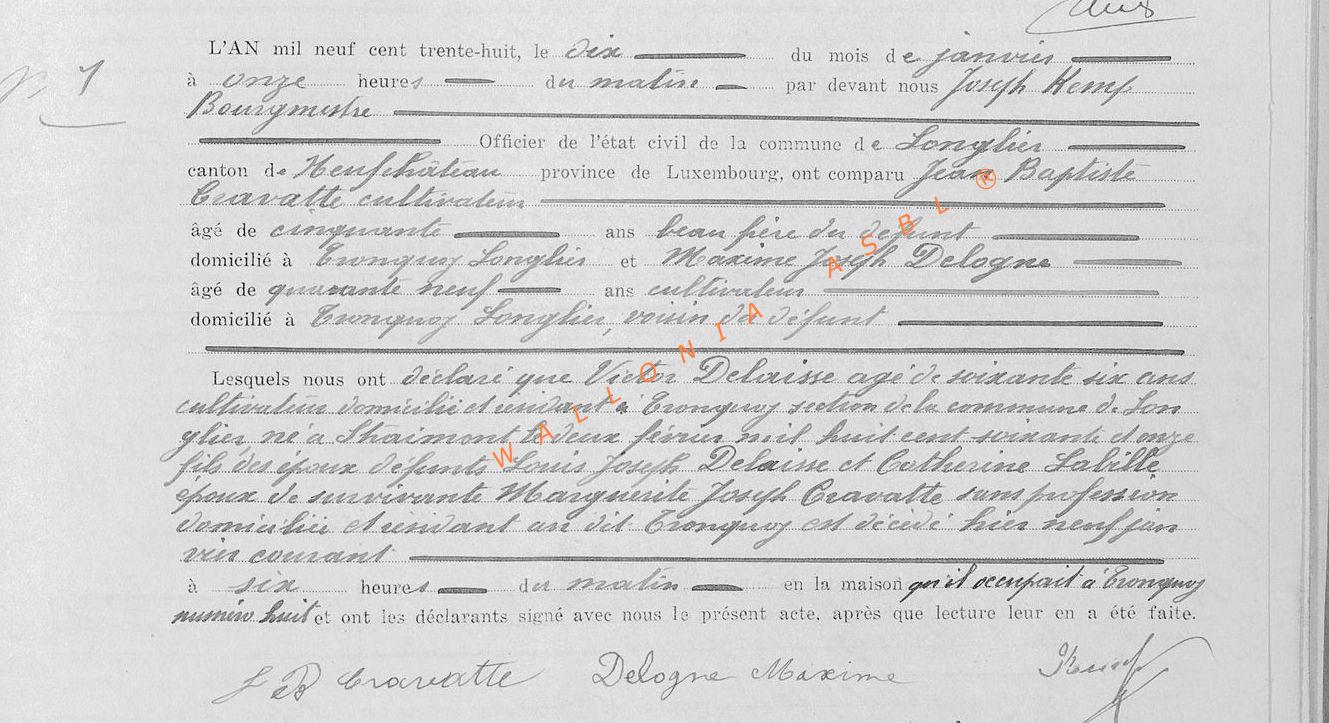 N° 1
L'AN mil neuf cent trente-huit, le dix du mois de janvier
à onze heures du matin par devant nous Joseph Kemp
Bourgmestre
Officier de l'état civil de la commune de Longlier
canton de Neufchâteau province de Luxembourg, ont comparu Jean Baptiste
Cravatte cultivateur
âgé de cinquante ans beau frère du défunt
domicilié à Tronquoy Longlier et Maxime Joseph Delogne
âgé de quarante neuf ans cultivateur
domicilié à Tronquoy Longlier, voisin du défunt
Lesquels nous ont déclaré que Victor Delaisse agé de soixante six ans
cultivateur domicilié et résidant à Tronquoy section de la commune de Lon
glier, né à Straimont le deux février mil huit cent soixante et onze
fils des époux défunts Louis Joseph Delaisse et Catherine Labille
époux de survivante Marguerite Joseph Cravatte sans profession
domiciliée et résidant au dit Tronquoy est décédé hier neuf jan
vier courant
à six heures du matin en la maison qu'il occupait à Tronquoy
numéro huit et ont les déclarants signé avec nous le présent acte, après que lecture leur en a été faite.
J B Cravatte Delogne Maxime Kemp
WALLONIA ASBL ®